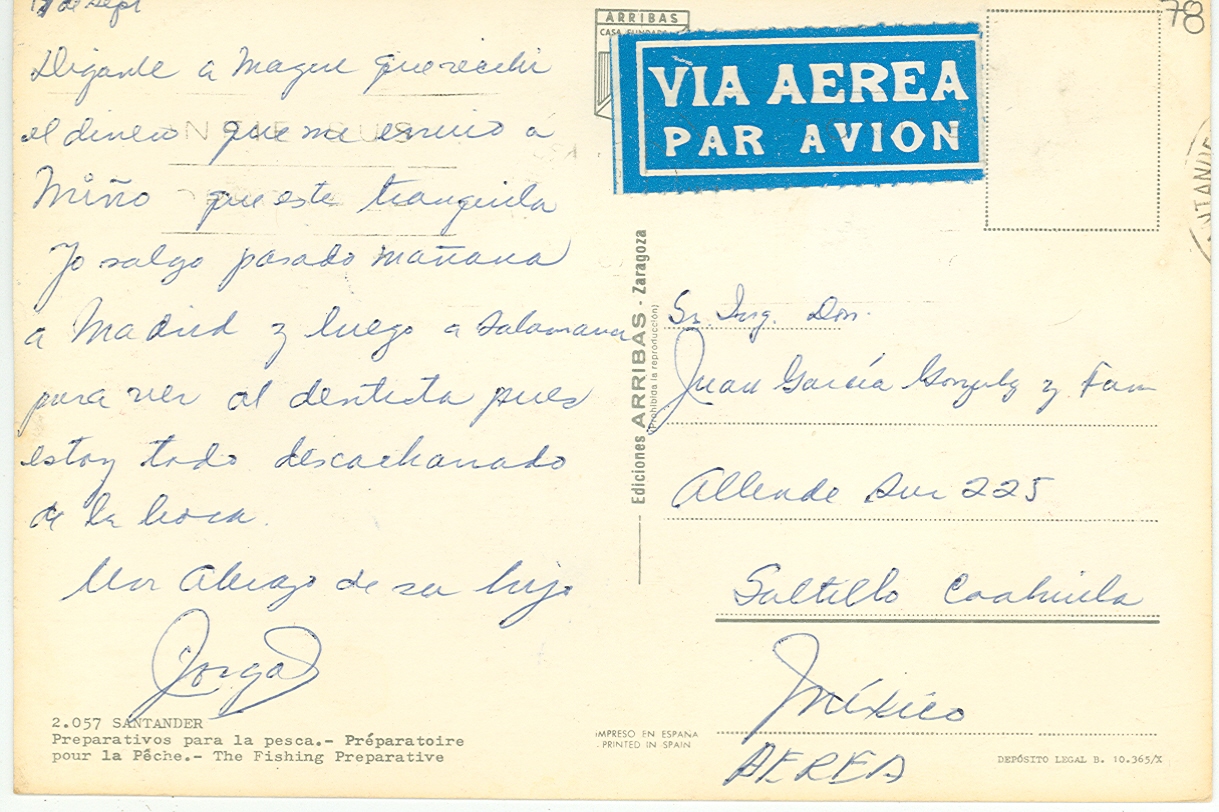 de Sept
Diganle a Mague que recibi
el dinero que me envio a
Miño que este tranquila
Yo salgo pasado mañana
a Madrid y luego a Salamanca
para ver al dentista pues
estoy todo descachanado
de la boca.
Un Abrazo de su hijo
Jorge
2.057 SANTANDER
Preparativos para la pesca.- Préparatoire
pour la Pêche.- The Fishing Preparative
ARRIBAS
CASA FUNDADA
VIA AEREA
PAR AVION
78
Ediciones ARRIBAS - Zaragoza
(Prohibida la reproducción)
Sr. Ing. Don.
Juan García González y Fam
Allende Sur 225
Saltillo Coahuila
México
AEREA
IMPRESO EN ESPAÑA
PRINTED IN SPAIN
DEPÓSITO LEGAL B. 10.365/X